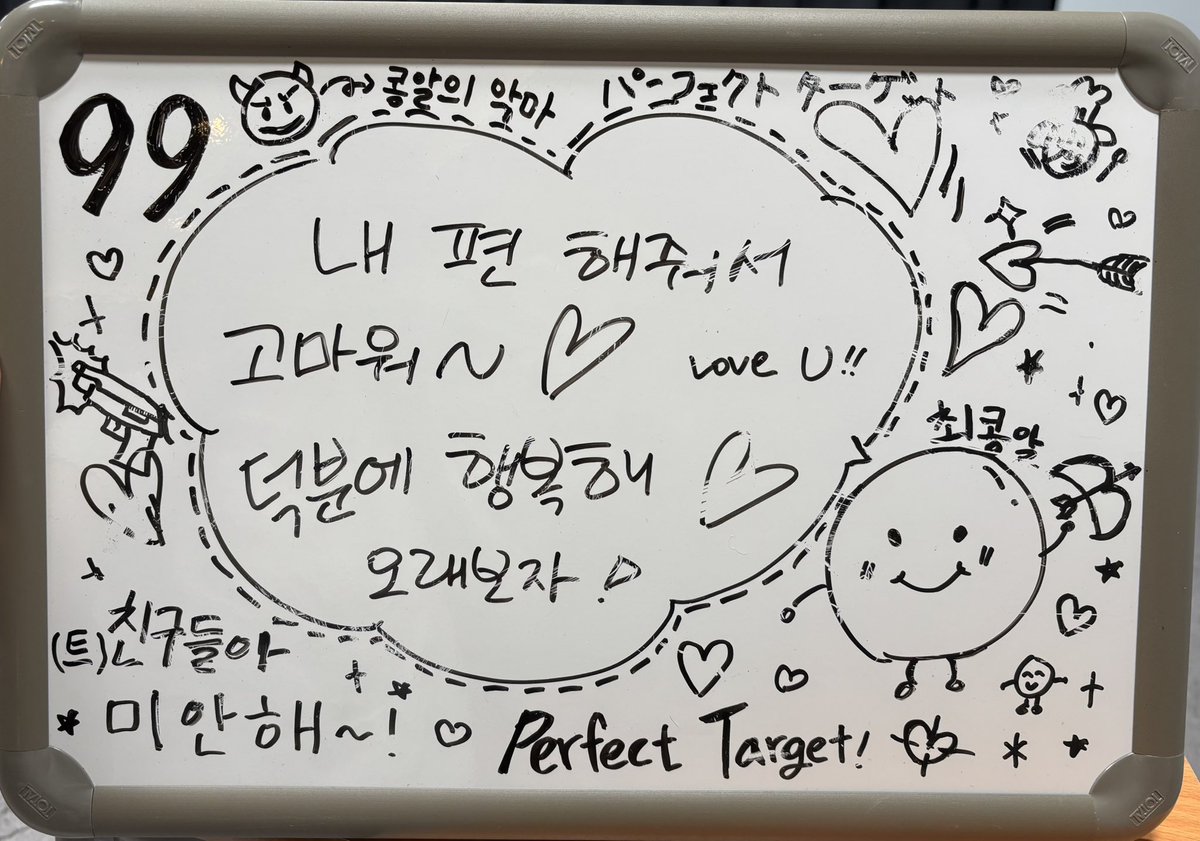 99
콩알의 악마
パーフェクト ターゲット
내 편 해줘서
고마워~
Love U!!
덕분에 행복해
오래보자!
최콩알
(트)친구들아
미안해~!
Perfect Target!
TOTAL
TOTAL
TOTAL
TOTAL